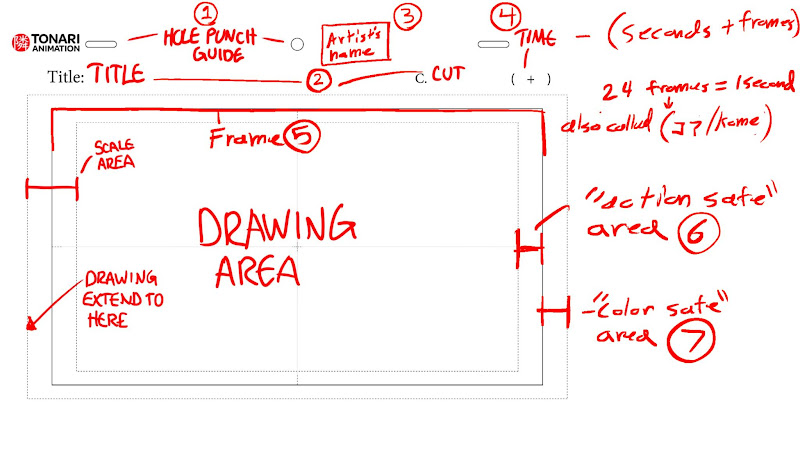 TONARI
ANIMATION
①
HOLE PUNCH
GUIDE
③
Artist's
name
④
TIME - (seconds + frames)
Title: TITLE
②
C. CUT
( + )
24 frames = 1second
also called (コマ/koma)
Frame ⑤
SCALE
AREA
DRAWING
AREA
"action safe"
area ⑥
DRAWING
EXTEND TO
HERE
"Color safe"
area ⑦